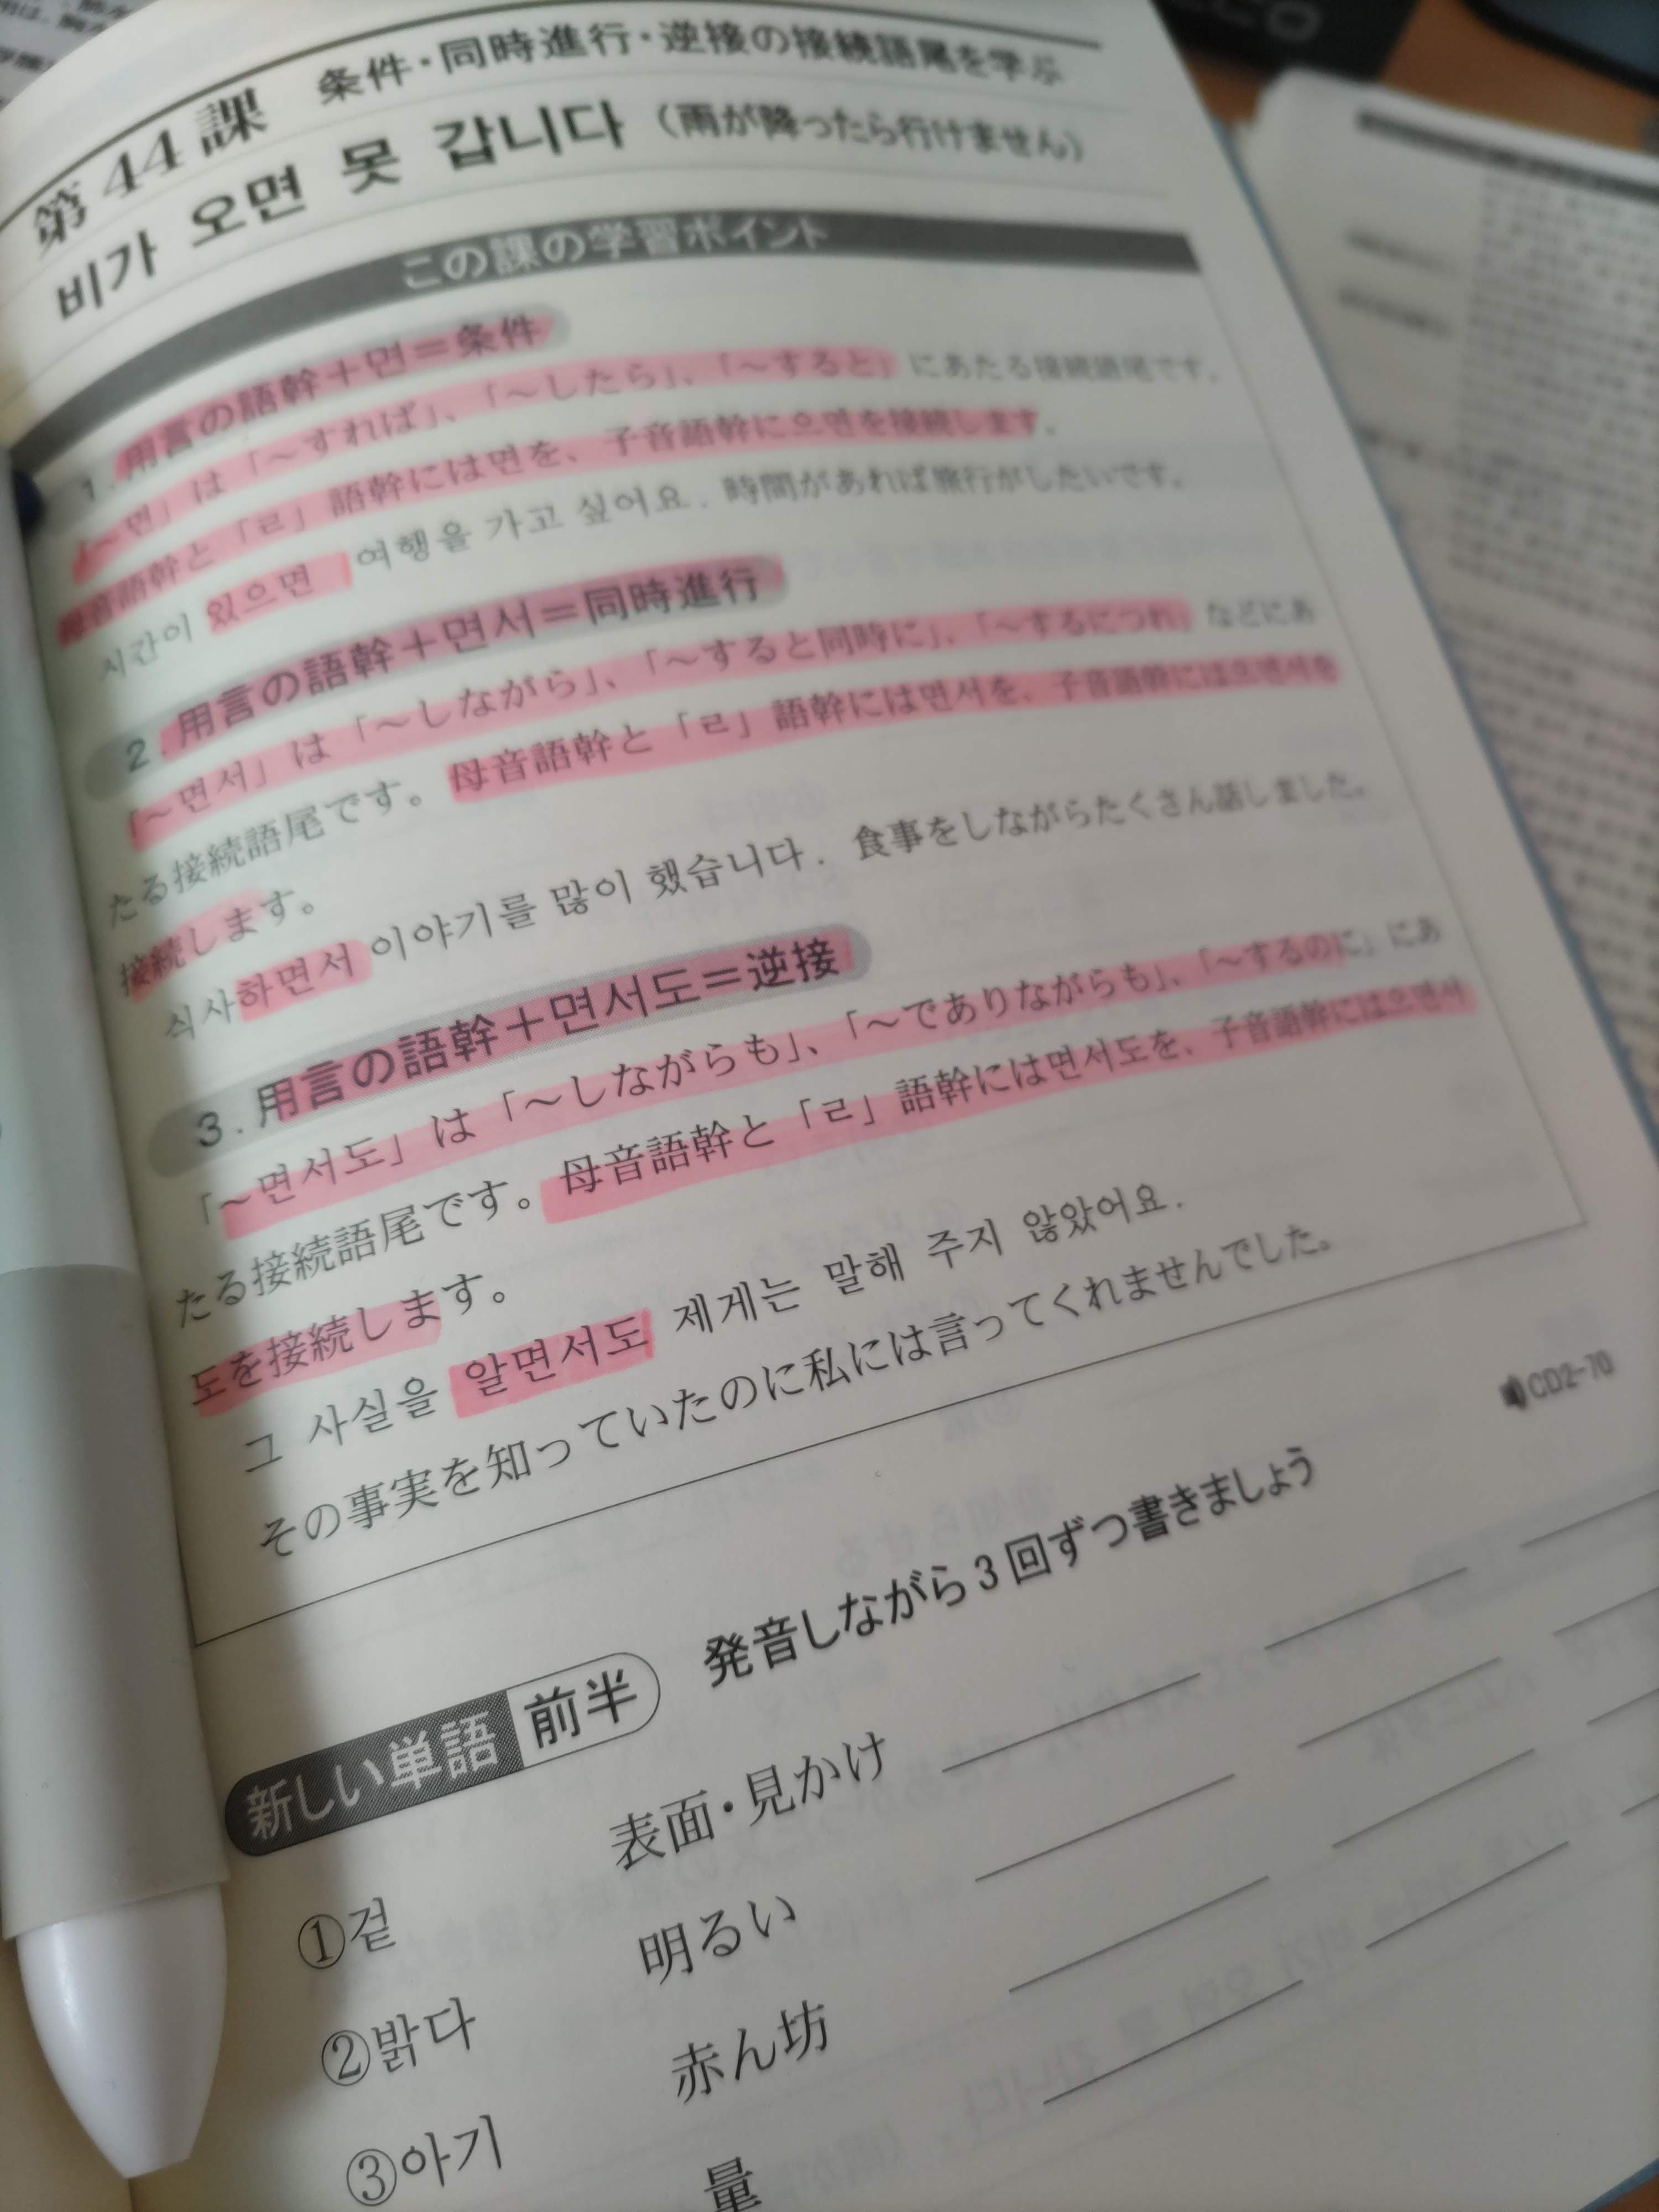 第44課 条件・同時進行・逆接の接続語尾を学ぶ
비가 오면 못 갑니다（雨が降ったら行けません）
この課の学習ポイント
1.用言の語幹＋면＝条件
「～면」は「～すれば」、「～したら」、「～すると」にあたる接続語尾です。
母音語幹と「ㄹ」語幹には면を、子音語幹に으면を接続します。
시간이 있으면 여행을 가고 싶어요. 時間があれば旅行がしたいです。
2.用言の語幹＋면서＝同時進行
「～면서」は「～しながら」、「～すると同時に」、「～するにつれ」などにあ
たる接続語尾です。母音語幹と「ㄹ」語幹には면서を、子音語幹には으면서を
接続します。
식사하면서 이야기를 많이 했습니다. 食事をしながらたくさん話しました。
3.用言の語幹＋면서도＝逆接
「～면서도」は「～しながらも」、「～でありながらも」、「～するのに」にあ
たる接続語尾です。母音語幹と「ㄹ」語幹には면서도を、子音語幹には으면서
도を接続します。
그 사실을 알면서도 제게는 말해 주지 않았어요.
その事実を知っていたのに私には言ってくれませんでした。
CD2-70
新しい単語 前半 発音しながら3回ずつ書きましょう
①겉 表面・見かけ
②밝다 明るい
③아기 赤ん坊
量